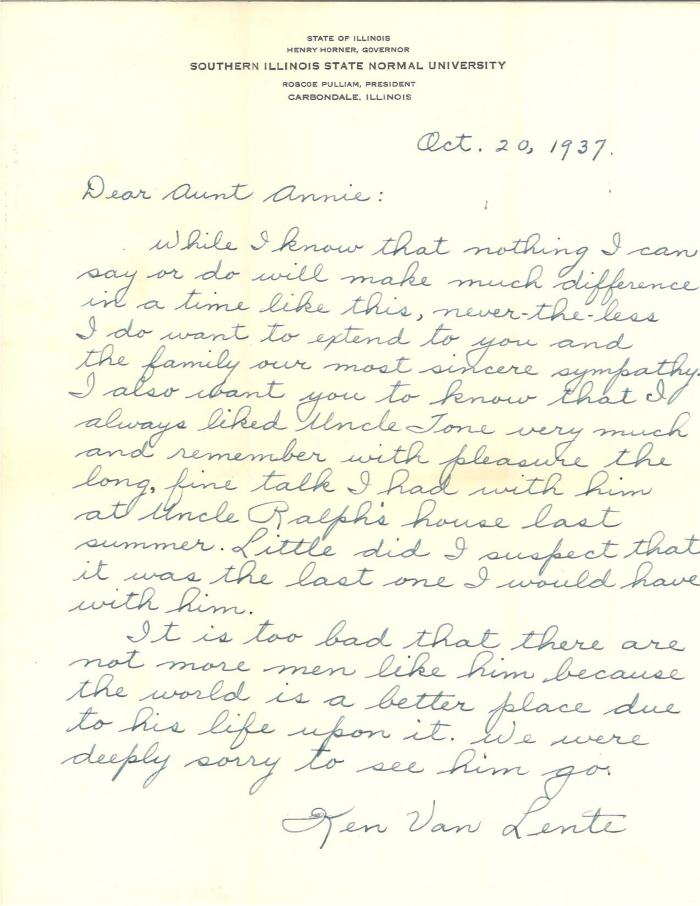 STATE OF ILLINOIS
HENRY HORNER, GOVERNOR
SOUTHERN ILLINOIS STATE NORMAL UNIVERSITY
ROSCOE PULLIAM, PRESIDENT
CARBONDALE, ILLINOIS
Oct. 20, 1937.
Dear Aunt Annie:
While I know that nothing I can
say or do will make much difference
in a time like this, never-the-less
I do want to extend to you and
the family our most sincere sympathy.
I also want you to know that I
always liked Uncle Tone very much
and remember with pleasure the
long, fine talk I had with him
at Uncle Ralph's house last
summer. Little did I suspect that
it was the last one I would have
with him.
It is too bad that there are
not more men like him, because
the world is a better place due
to his life upon it. We were
deeply sorry to see him go.
Ken Van Lente